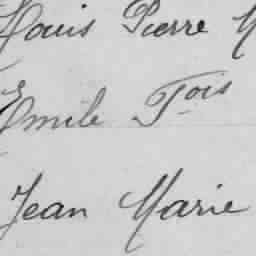 Louis Pierre M
Emile Fois
Jean Marie